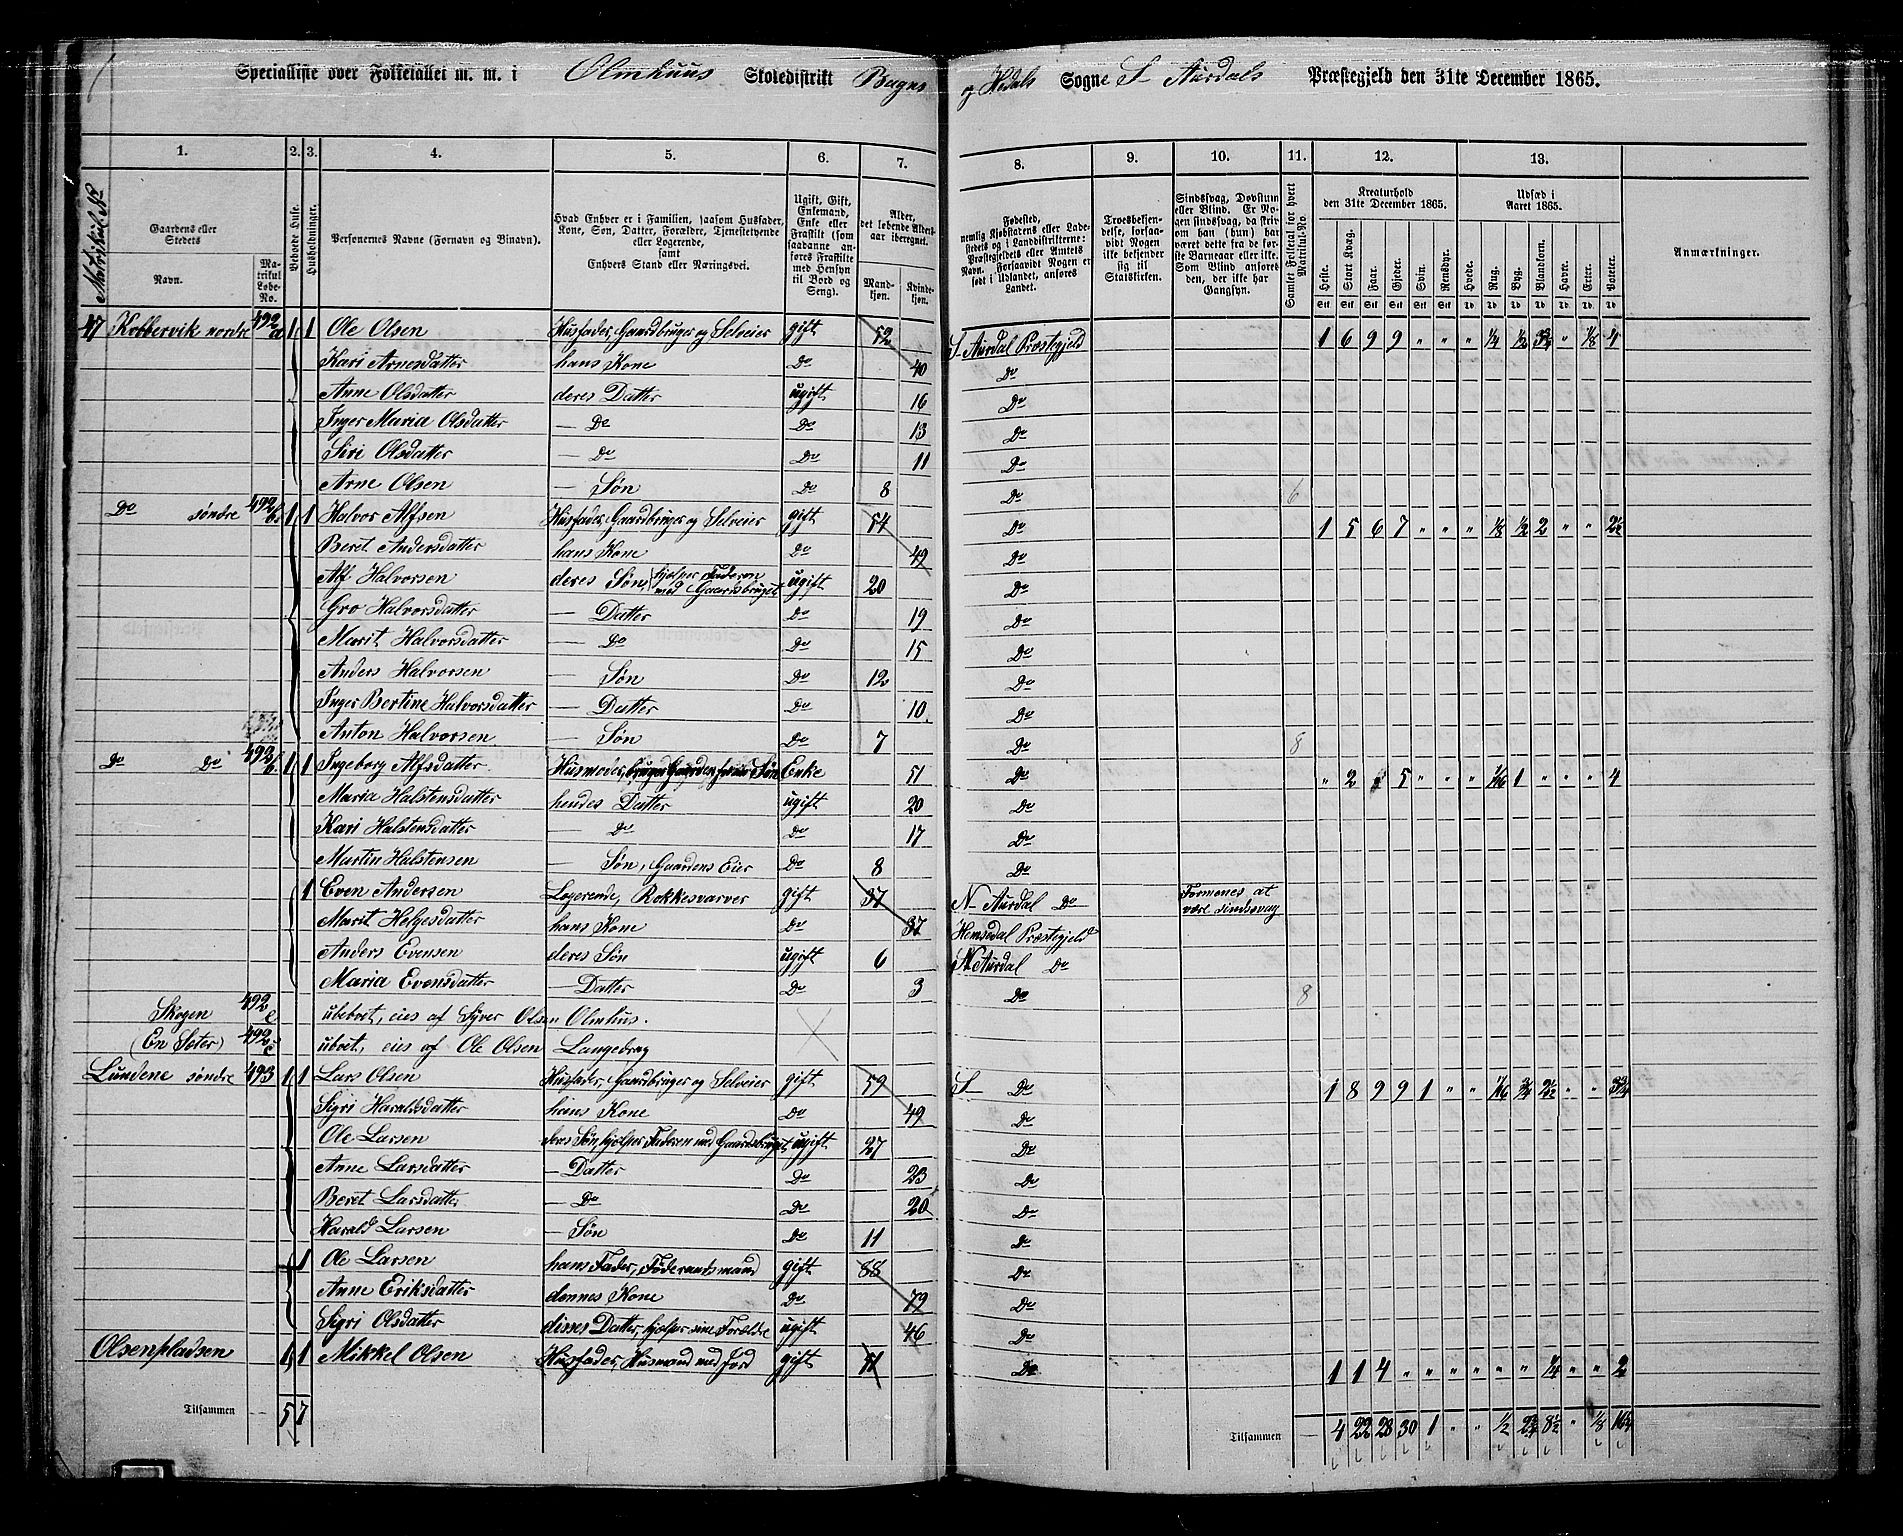 Specialliste over Folketallet m. m. i Olmhuus Skoledistrikt Bagns og Hedals Sogne S Aurdals Præstegjeld den 31te December 1865.
1. 2. 3. 4. 5. 6. 7. 8. 9. 10. 11. 12. 13.
Matrikul No
Gaardens eller Stedets
Navn.
Matrikul Løbe-No.
Beboede Huse.
Husholdninger.
Personernes Navne (Fornavn og Binavn).
Hvad Enhver er i Familien, saasom Husfader, Kone, Søn, Datter, Forældre, Tjenestetyende eller Logerende, samt Enhvers Stand eller Næringsvei.
Ugift, Gift, Enkemand, Enke eller Fraskilt (som saadanne anføres Fraskilte med Hensyn til Bord og Seng).
Alder, det løbende Aldersaar iberegnet.
Mandkjøn. Kvindekjøn.
Fødested, nemlig Kjøbstadens eller Ladestedets og i Landdistrikterne: Præstegjeldets eller Amtets Navn. Forsaavidt Nogen er født i Udlandet, anføres Landet.
Troesbekjendelse, forsaavidt Nogen ikke bekjender sig til Statskirken.
Sindssvag, Døvstum eller Blind. Er Nogen sindssvag, da skrives om han (hun) har været dette fra de første Barneaar eller ikke. Som Blind ansøres den, der ikke har Gangsyn.
Samlet Folketal for hvert Matrikul-No
Kreaturhold den 31te December 1865.
Heste. Stort Kvæg. Faar. Gjeder. Svin. Rensdyr.
Udsæd i Aaret 1865.
Hvede. Rug. Byg. Blandkorn. Havre. Erter. Poteter.
Anmærkninger.
47 Kobbervik nordre 492 a 1 1 Ole Olsen Husfader, Gaardbruger og Selveier gift 52 S. Aurdal Præstegjeld 1 6 9 9 " " " 1/4 1/2 3 3/4 " 1/8 4
Kari Arnesdatter hans Kone Do 40 Do
Anne Olsdatter deres Datter ugift 16 Do
Inger Maria Olsdatter — Do Do 13 Do
Siri Olsdatter — Do Do 11 Do
Arne Olsen — Søn Do 8 Do 6
Do søndre 492 b 1 1 Halvor Alfsen Husfader, Gaardbruger og Selveier gift 54 Do 1 5 6 7 " " " 1/8 1/2 2 " " 2 1/2
Beret Andersdatter hans Kone Do 49 Do
Alf Halvorsen deres Søn, hjelper Faderen med Gaardsbruget ugift 20 Do
Gro Halvorsdatter — Datter Do 19 Do
Marit Halvorsdatter — Do Do 15 Do
Anders Halvorsen — Søn Do 12 Do
Inger Bertine Halvorsdatter — Datter Do 10 Do
Anton Halvorsen — Søn Do 7 Do 8
Do Do 492 b. 1 1 Ingeborg Alfsdatter Husmoder, bruger Gaarden for sin Søn Enke 51 Do " 2 5 " " " 1/16 1 " " " 4
Maria Halstensdatter hendes Datter ugift 20 Do
Kari Halstensdatter — Do Do 17 Do
Martin Halstensen — Søn, Gaardens Eier Do 8 Do
1 Even Andersen Logerende, Rokkesvarver gift 37 N- Aurdal Do Formenes at være sindssvag
Marit Helgesdatter hans Kone Do 37 Hemsedal Præstegjeld
Anders Evensen deres Søn ugift 6 N Aurdal Do
Maria Evensdatter — Datter Do 3 Do 8
Skogen 492 ubebot, eies af Syver Olsen Olmhus.
(En Seter) 492 c ubot, eies af Ole Olsen Langedrag
Lundene søndre 493 1 1 Lars Olsen Husfader, Gaardbruger og Selveier gift 59 S- Do 1 8 9 9 1 " " 1/16 3/4 2 1/2 " " 3 3/4
Sigri Haraldsdatter hans Kone Do 49 Do
Ole Larsen deres Søn hjelper Faderen med Gaardsbruget ugift 27 Do
Anne Larsdatter — Datter Do 23 Do
Beret Larsdatter — Do Do 20 Do
Harald Larsen — Søn Do 11 Do
1 Ole Larsen hans Fader, Føderaadsmand gift 88 Do
Anne Eriksdatter dennes Kone Do 79 Do
Sigri Olsdatter disses Datter, hjelper sine Forældre ugift 46 Do
Olsenpladsen 1 1 Mikkel Olsen Husfader, Husmand med Jord gift 51 Do 1 1 4 " " " " " " 1/4 " " 2
Tilsammen — 5 7
Tilsammen — 4 22 28 30 1 " " 1/2 2 3/4 8 1/2 " 1/8 16 1/4